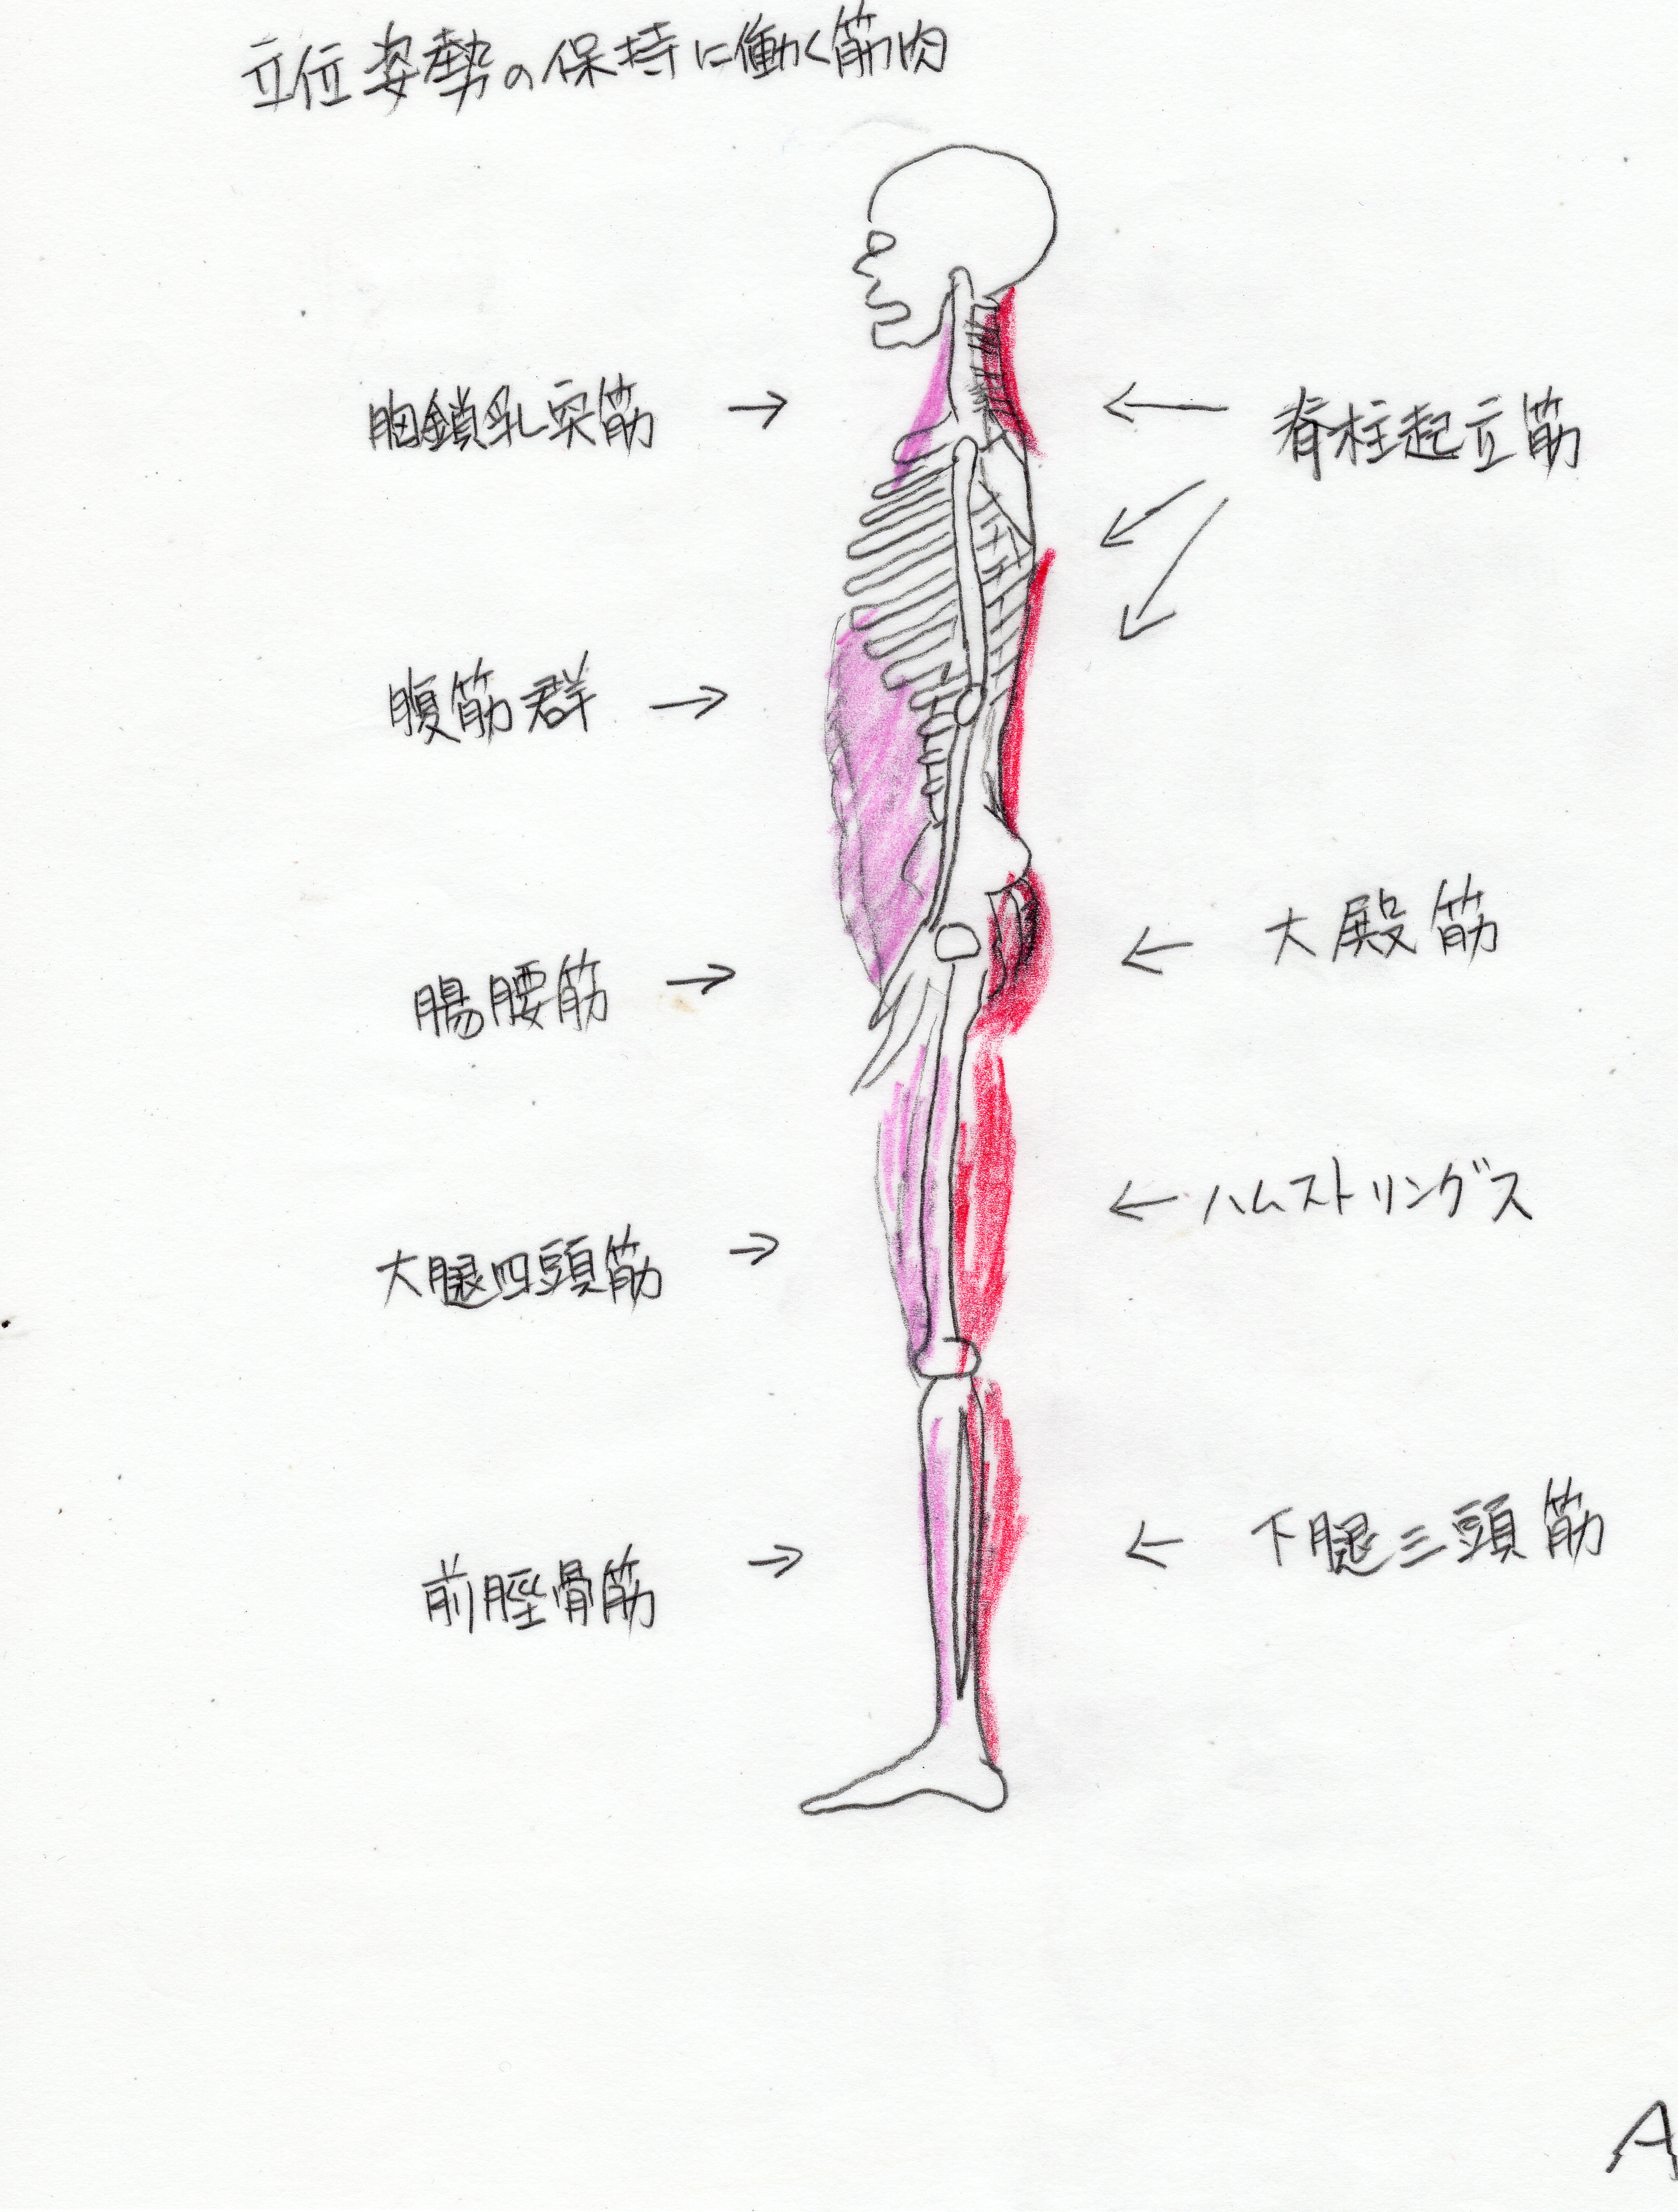 立位姿勢の保持に働く筋肉
胸鎖乳突筋
脊柱起立筋
腹筋群
大殿筋
腸腰筋
ハムストリングス
大腿四頭筋
下腿三頭筋
前脛骨筋
A